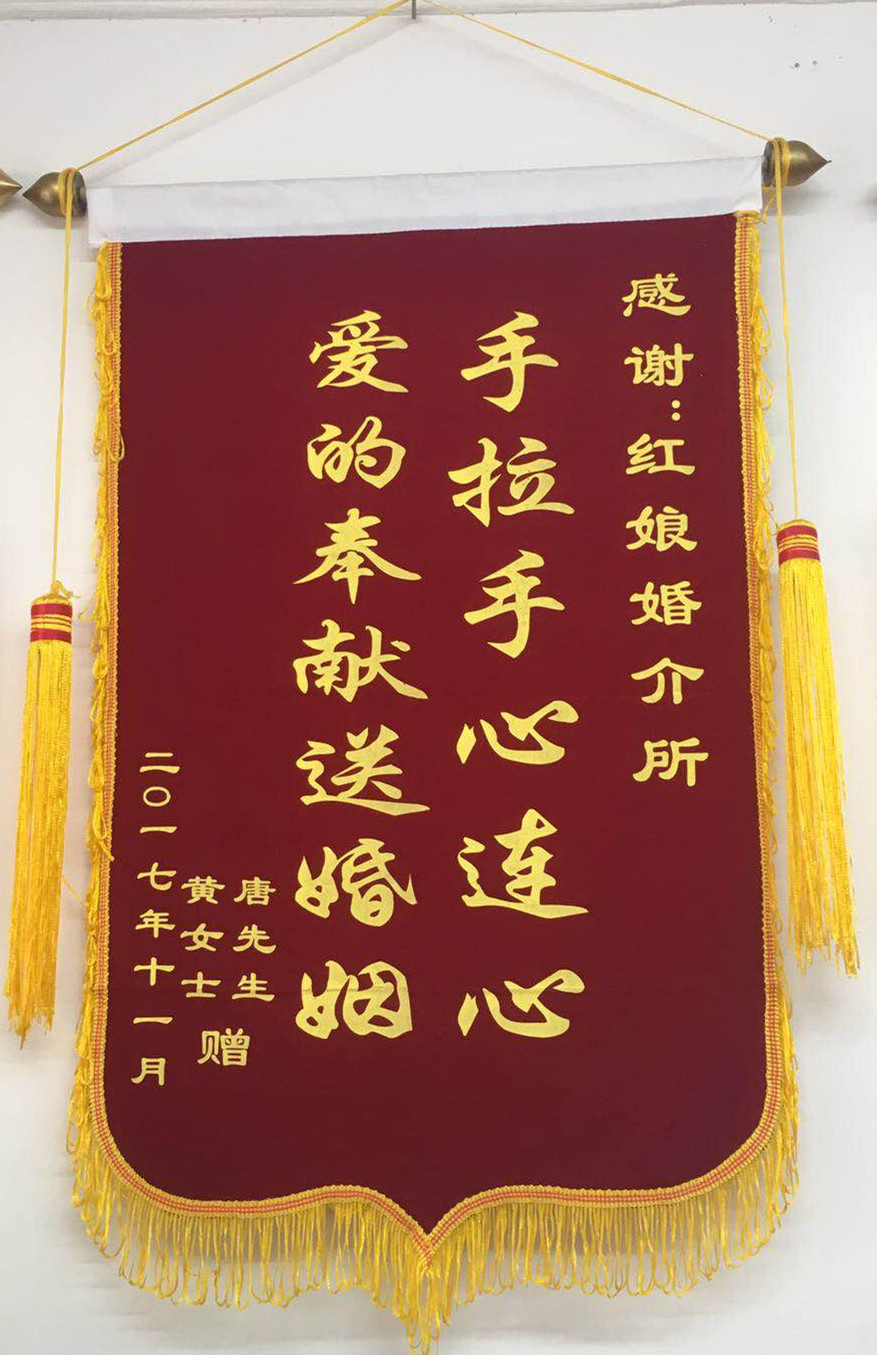 感谢:红娘婚介所
手拉手心连心
爱的奉献送婚姻
唐先生
黄女士
赠
二〇一七年十一月